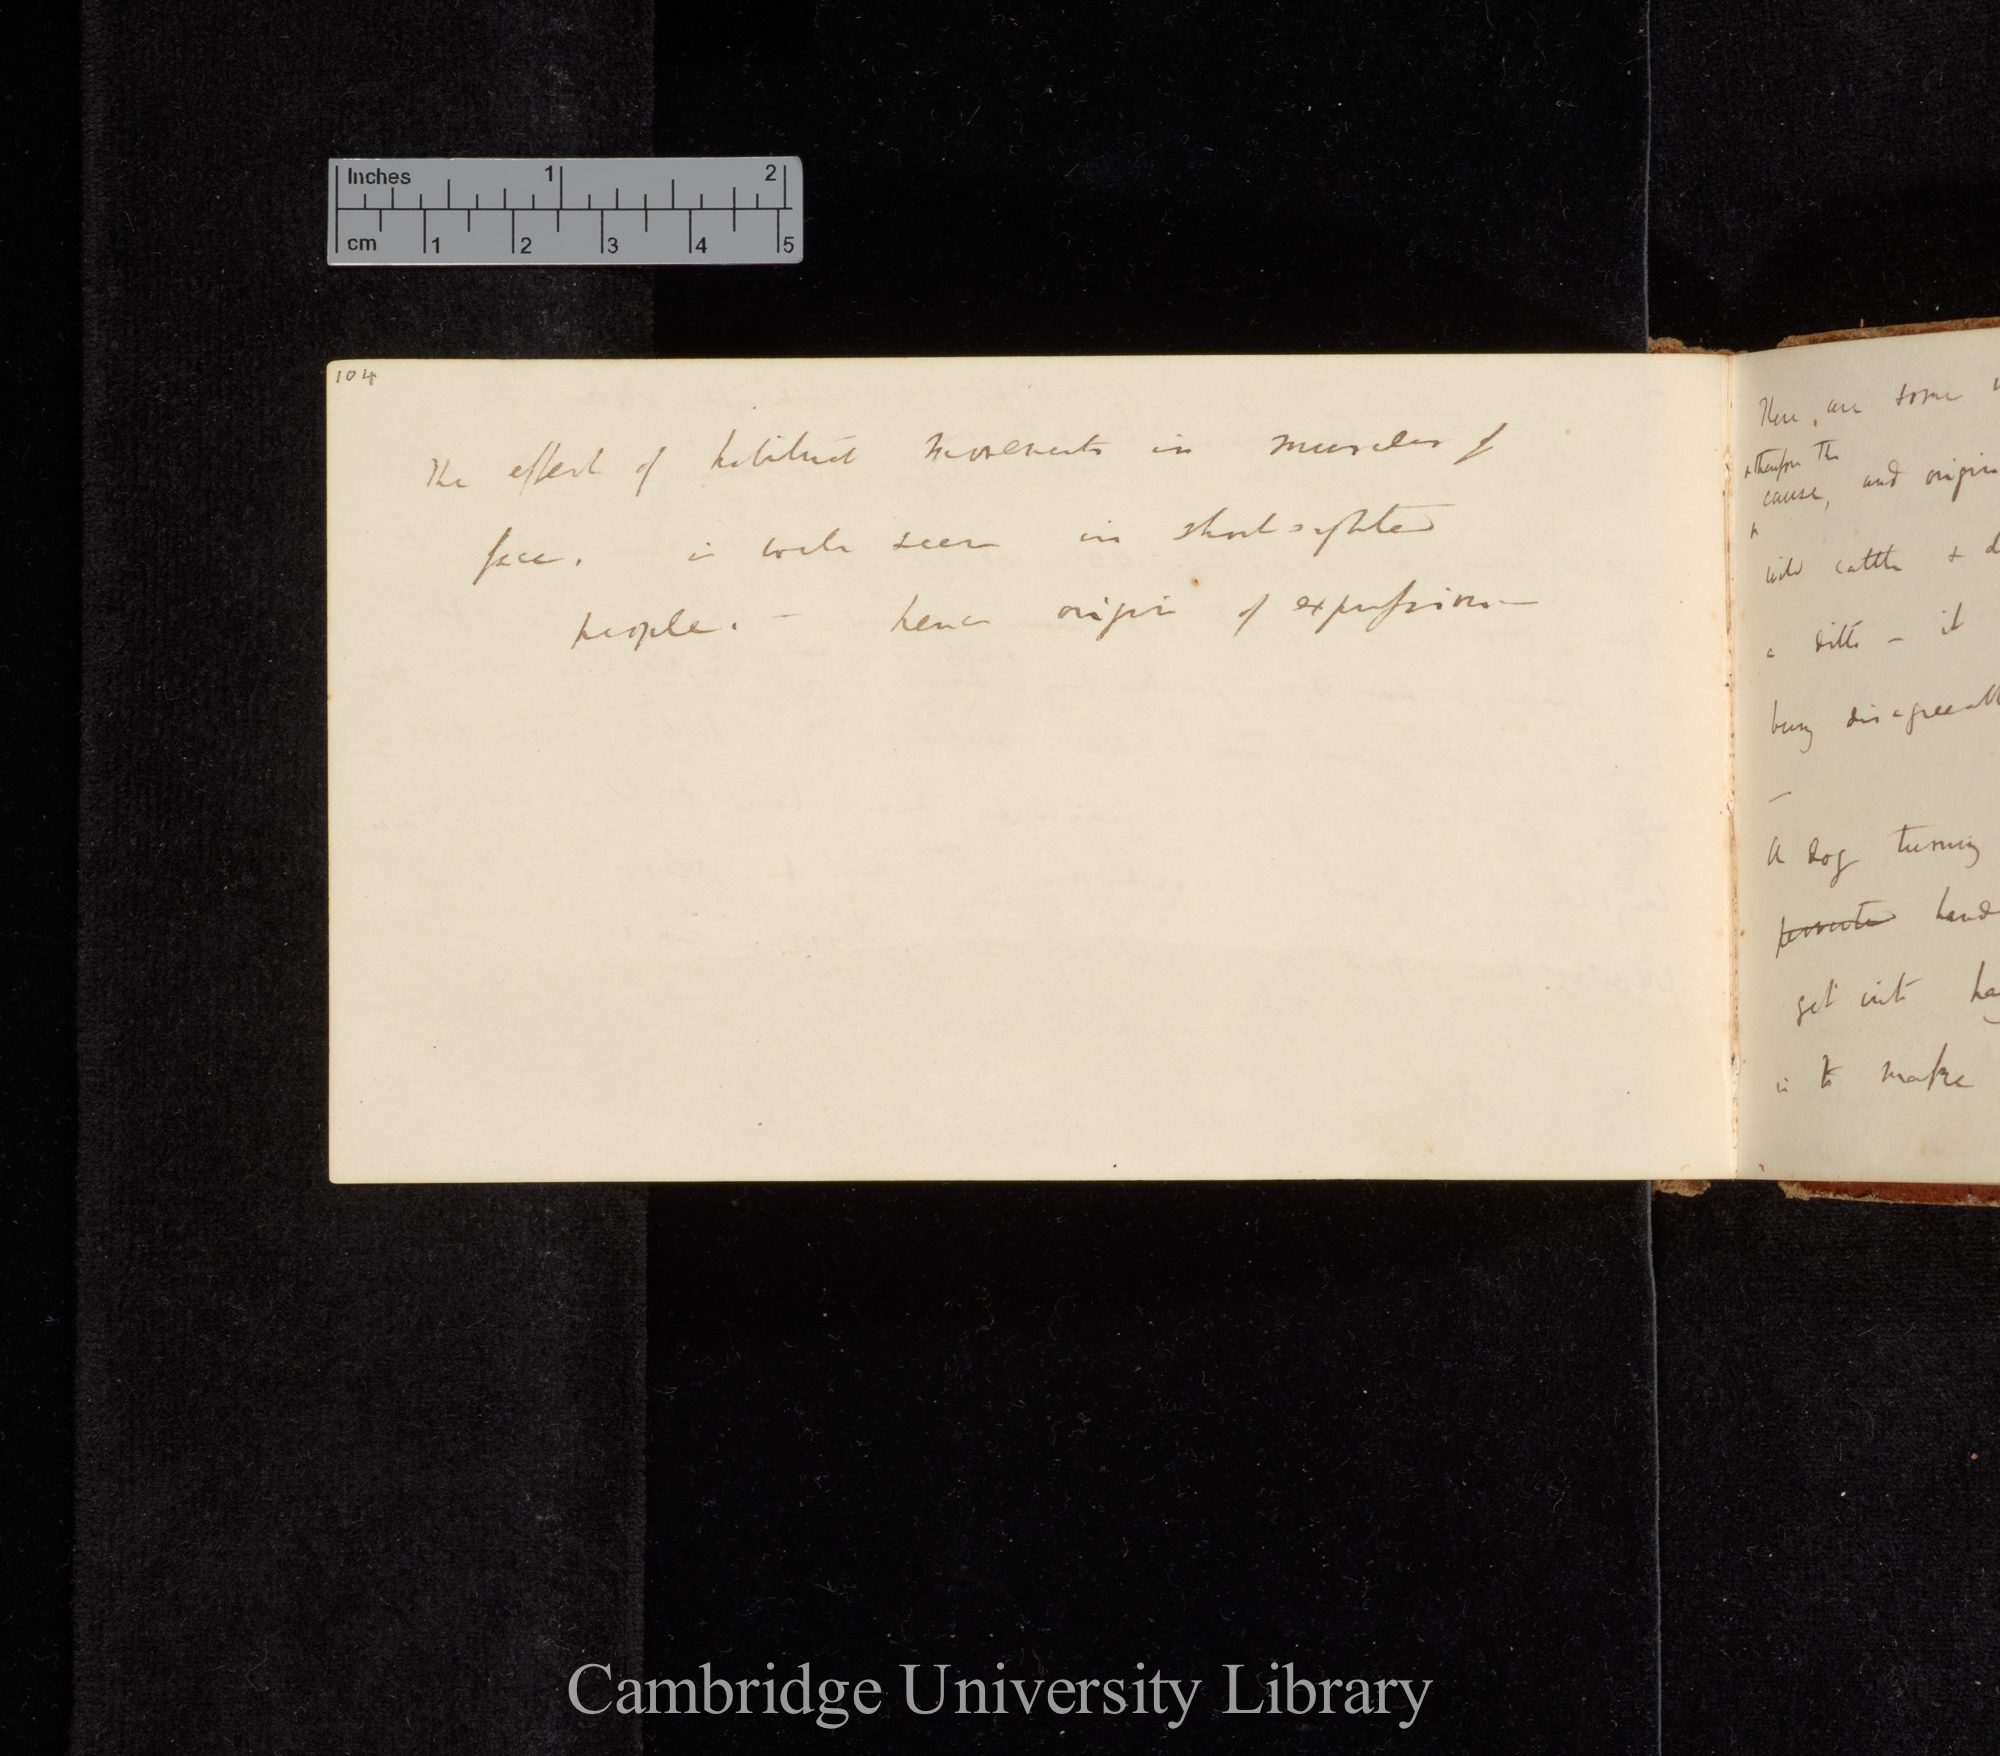 Inches 1 2
cm 1 2 3 4 5
104
The effect of habitual movements in muscles of
face. is well seen in short-sighted
people. — hence origin of expression —
There, are some
& therefore the
cause, and origin
wild cattle & d
a ditto — it
being disagreeabl
—
A dog turning
hand
get into hay
is to make
Cambridge University Library